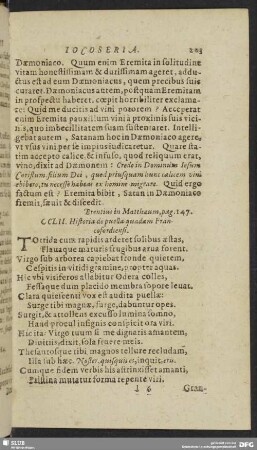 IOCOSERIA. 203
Dæmoniaco. Quum enim Eremita in solitudine
vitam honestissimam & durissimam ageret, addu-
ctus est ad eum Dæmoniacus, quem precibus suis
curaret. Dæmoniacus autem, postquam Eremitam
in prospectu haberet, cœpit horribiliter exclama-
re: Quid me ducitis ad vini potorem? Acceperat
enim Eremita pauxillum vini à proximis suis vici-
nis, quo imbecillitatem suam sustentaret. Intelli-
gebat autem, Satanam hoc in Dæmoniaco agere,
vt vsus vini per se impius iudicaretur. Quare sta-
tim accepto calice, & infuso, quod reliquum erat,
vino, dixit ad Dæmonem: Credo in Dominum Iesum
Christum filium Dei, quod priusquam hunc calicem vini
ebibero, tu necessè habeas ex homine migrare. Quid ergo
factum est? Eremita bibit, Satan in Dæmoniaco
fremit, sæuit & discedit.
Brentius in Matthæum, pag. 147.
CCLII. Historia de puella quadam Fran-
cofordensi.
Torrida cum rapidis arderet solibus æstas,
Flauaque maturis frugibus arua forent.
Virgo sub arborea capiebat fronde quietem,
Cespitis in vitidi gramine, propter aquas.
Hic vbi vitiferos afflebitur Odera colles,
Fessaque dum placido membra sopore leuat.
Clara quiescenti vox est audita puellæ:
Surge tibi magnæ, surge, dabuntur opes.
Surgit, & attollens excusso lumina somno,
Haud procul insignis conspicit ora viri.
Hic ita: Virgo tuum si me dignaris amantem,
Diuitiis, dixit, sola fruere meis.
Thesaurosque tibi magnos tellure recludam,
Illa sub hæc: Noster, quisquis es, inquit, eris.
Cumque fidem verbis his astrinxisset amanti,
Pallida mutatur forma repente viri.
I 6 Gran-
SLUB